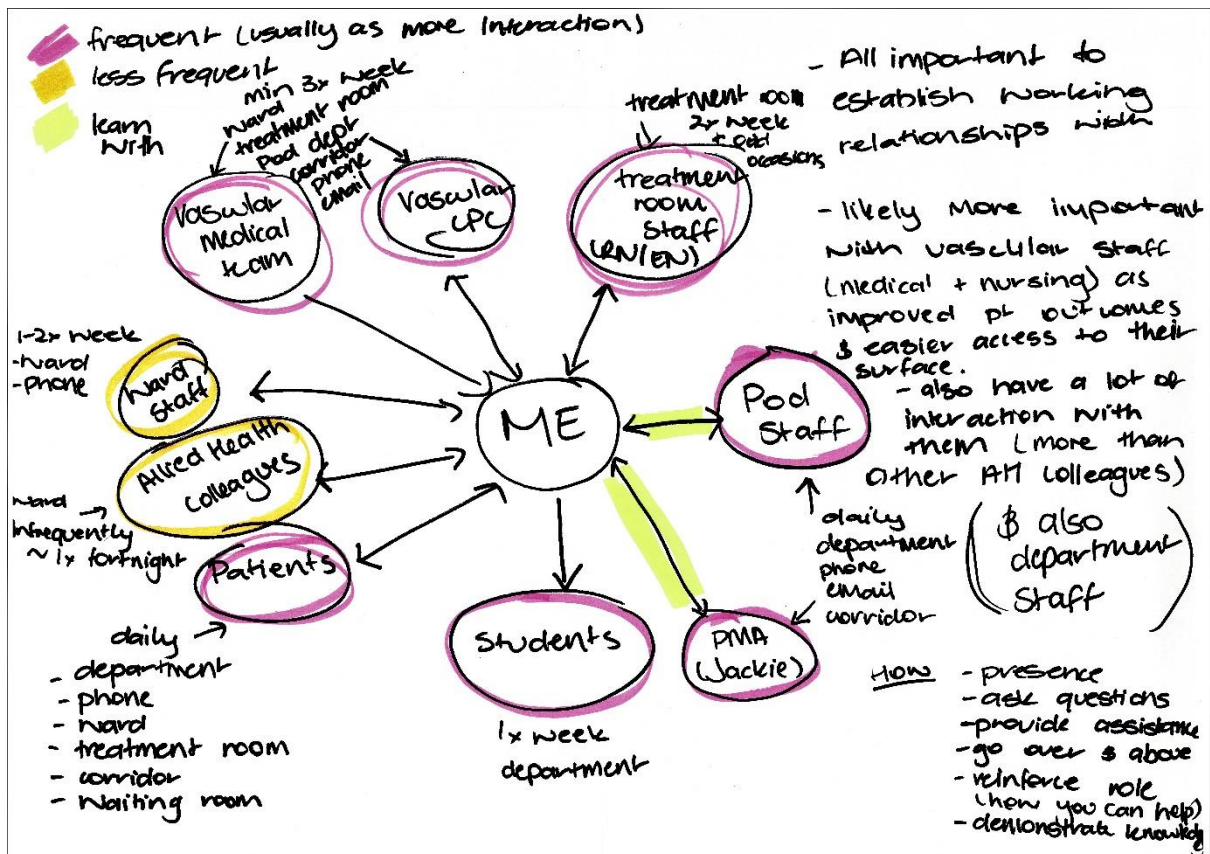 frequent (usually as more interaction)
less frequent
learn
with
min 3x week
ward
treatment room
Pod dept
corridor
phone
email
Vascular
Medical
team
Vascular
CPC
treatment room
2x week
+ odd
occasions
treatment
room
staff
(RN/EN)
- All important to
establish working
relationships with
- likely more important
with vascular staff
(medical + nursing) as
improved pt outcomes
& easier access to their
surface.
- also have a lot of
interaction with
them (more than
other AH colleagues)
(& also
department
staff)
1-2x week
-ward
-phone
Ward
staff
Allied Health
colleagues
ward
infrequently
~ 1x fortnight
Patients
daily
- department
- phone
- ward
- treatment room
- corridor
- waiting room
ME
Students
1x week
department
Pod
Staff
PMA
(Jackie)
daily
department
phone
email
corridor
HOW
- presence
- ask questions
- provide assistance
- go over & above
- reinforce role
(how you can help)
- demonstrate knowledg